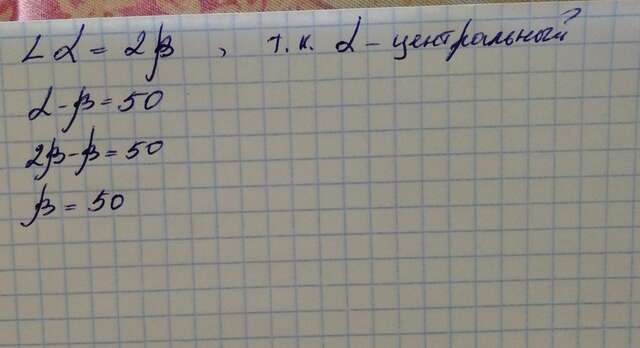 ∠α = 2β, т.к. α - центральный
α - β = 50
2β - β = 50
β = 50